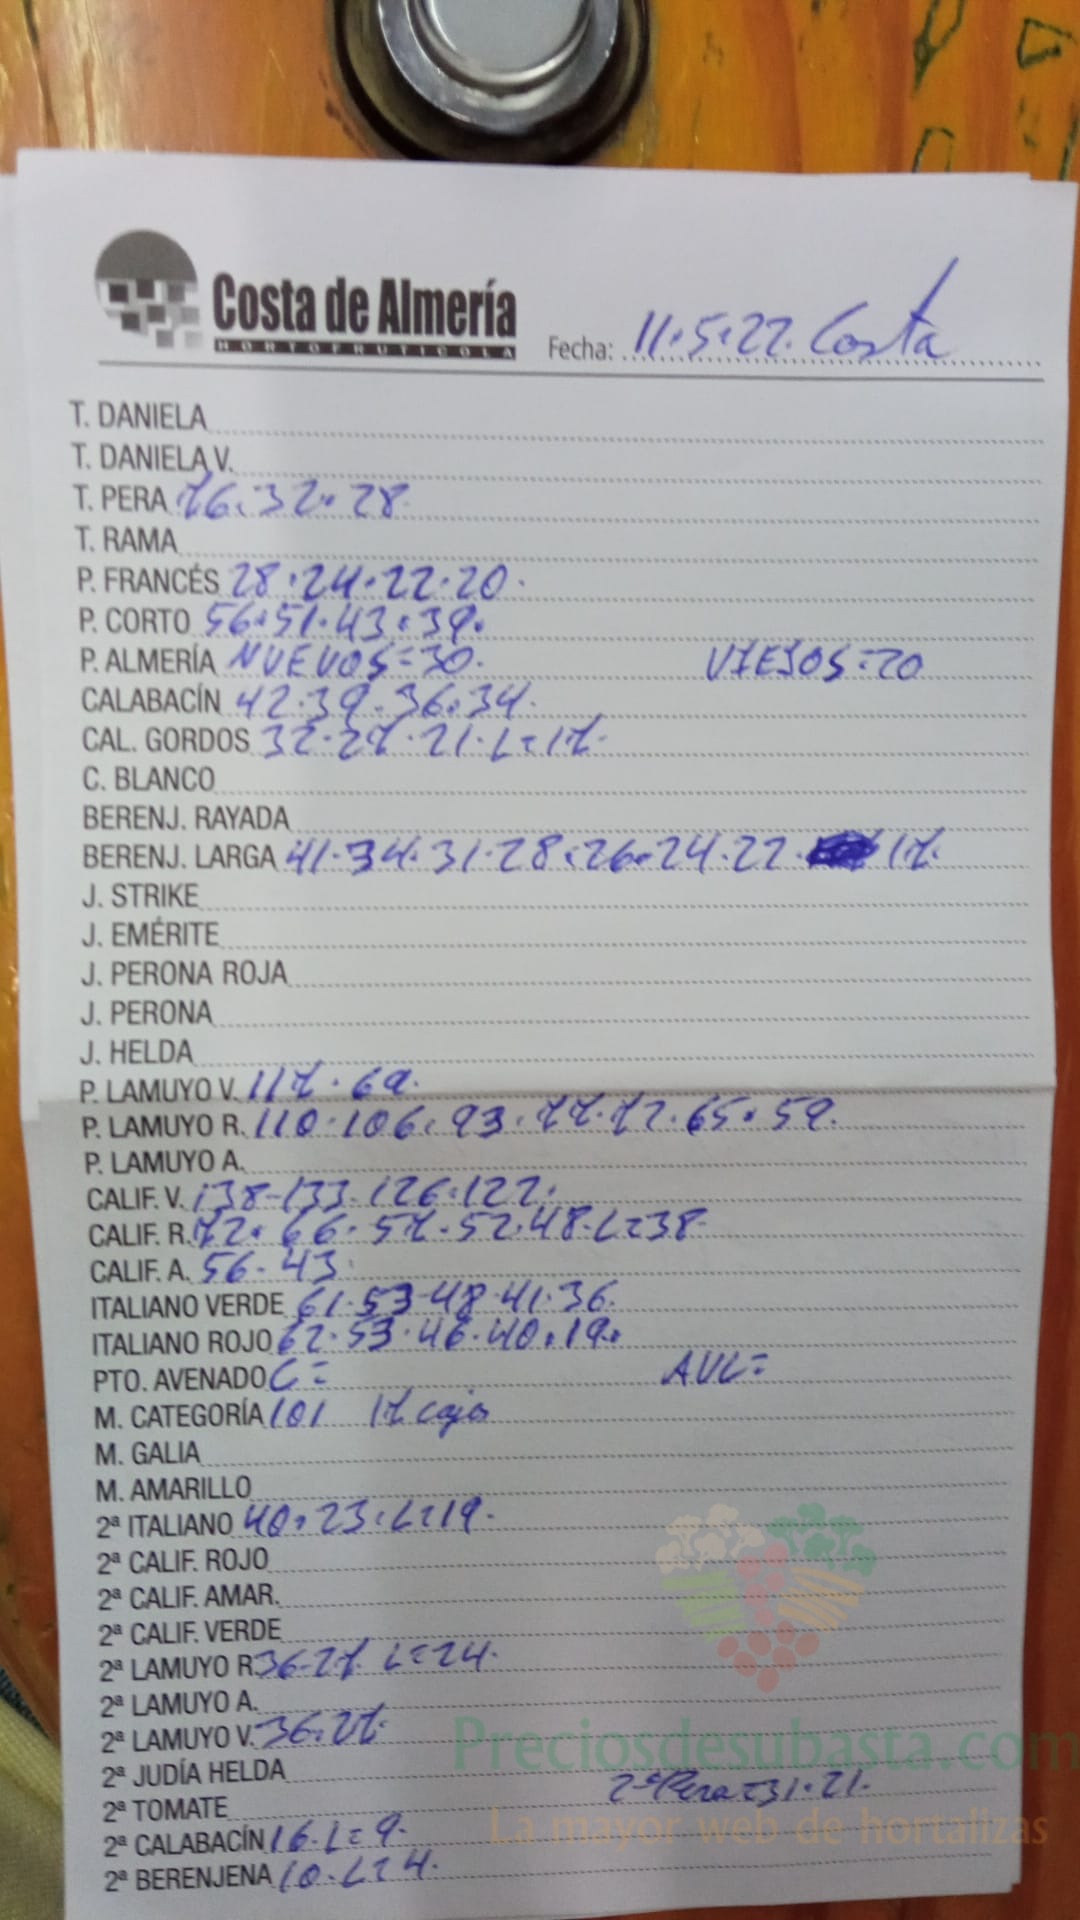 Costa de Almería
HORTOFRUTICOLA
Fecha: 11.5.22. Costa
T. DANIELA
T. DANIELA V.
T. PERA 76.32.28.
T. RAMA
P. FRANCÉS 28.24.22.20.
P. CORTO 56.51.43.39.
P. ALMERÍA NUEVOS=30. VIEJOS=20
CALABACÍN 42.39.36.34.
CAL. GORDOS 32.27.21.L=17.
C. BLANCO
BERENJ. RAYADA
BERENJ. LARGA 41.34.31.28.26.24.22. 17.
J. STRIKE
J. EMÉRITE
J. PERONA ROJA
J. PERONA
J. HELDA
P. LAMUYO V. 117.69.
P. LAMUYO R. 110.106.93.77.72.65.59.
P. LAMUYO A.
CALIF. V. 138-133.126.122.
CALIF. R. 72.66.57.52.48.L=38.
CALIF. A. 56-43.
ITALIANO VERDE 61.53-48-41.36.
ITALIANO ROJO 62.53.46.40.19.
PTO. AVENADO C= AVL=
M. CATEGORÍA 101 17 cajas
M. GALIA
M. AMARILLO
2ª ITALIANO 40.23.L=19.
2ª CALIF. ROJO
2ª CALIF. AMAR.
2ª CALIF. VERDE
2ª LAMUYO R. 36-27. L=24.
2ª LAMUYO A.
2ª LAMUYO V. 36.27.
Preciosdesubasta.com
2ª JUDÍA HELDA
2ª TOMATE 2ª Pera=31.21.
La mayor web de hortalizas
2ª CALABACÍN 16.L=9.
2ª BERENJENA 10.L=4.